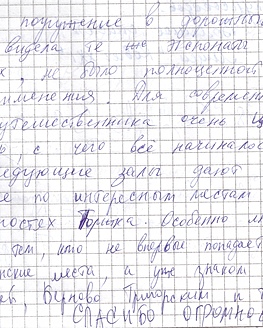 погружение в дорожный
видела те же экспонаты
х, не было полноценной
именения. Для современ
утешественника очень ц
ь, с чего всё начиналос
едующие залы дают
е по интересным местам
ностях Торжка. Особенно
тем, кто не впервые попадает
нские места, и уже знаком
ев, Берново, Пригорским и т
СПАСИБО ОГРОМНОЕ